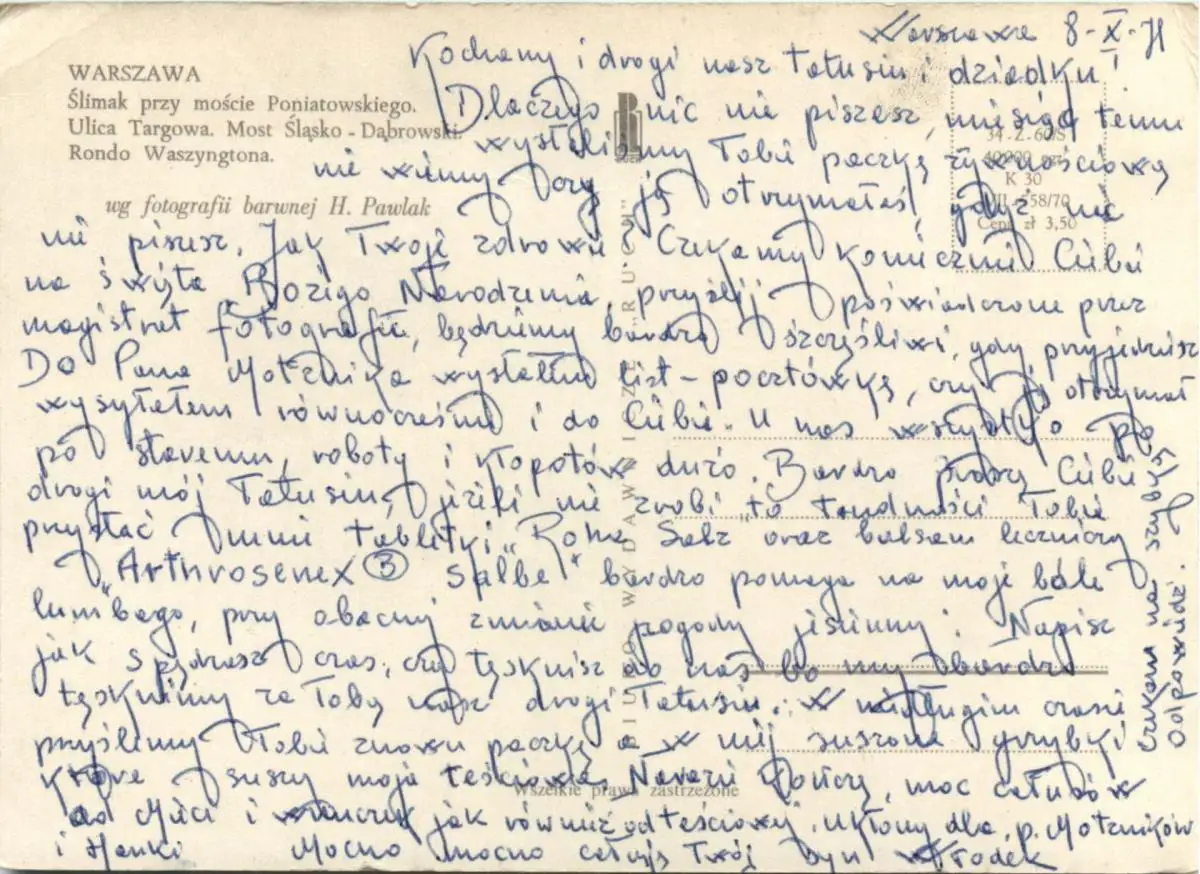 WARSZAWA
Ślimak przy moście Poniatowskiego.
Ulica Targowa. Most Śląsko-Dąbrowski
Rondo Waszyngtona.
wg fotografii barwnej H. Pawlak
Warszawa 8-X-71
Kochany i drogi nasz Tatusiu i dziadku!
Dlaczego nic nie piszesz, miesiąc temu
wysłaliśmy Tobie paczkę żywnościową
nie wiemy czy ją otrzymałeś, gdyż nic
nie piszesz. Jak Twoje zdrowie? Czekamy koniecznie Ciebie
na święta Bożego Narodzenia, przyślij poświadczone przez
magistrat fotografie, będziemy bardzo szczęśliwi, gdy przyjedziesz
Do Pana Motznika wysłałem list-pocztówkę, czy ją otrzymał
wysyłałem równocześnie i do Ciebie. U nas wszystko po
staremu, roboty i kłopotów dużo. Bardzo proszę Ciebie
drogi mój Tatusiu, jeżeli nie zrobi to trudności Tobie
przysłać mnie tabletki "Salz" oraz balsam leczniczy
"Arthrosenex ③ Salbe" bardzo pomaga na moje bóle
lumbago, przy obecnej zmianie pogody jesiennej. Napisz
jak spędzasz czas, czy tęsknisz do nas bo my bardzo
tęsknimy za Tobą nasz drogi Tatusiu. W niedługim czasie
prześlemy Tobie znowu paczkę a w niej suszone grzybki
które suszy moja teściowa. Narazie kończę, moc całusów
od i jak również od teściowej. Ukłony dla p. Motzników
i Hanki Mocno mocno całuję Twój syn Włodek
czekam na szybką
odpowiedź.
BIURO WYDAWNICZE "RUCH"
RUCH
34.Z.60/S
K 30
Cena zł 3,50
Wszelkie prawa zastrzeżone